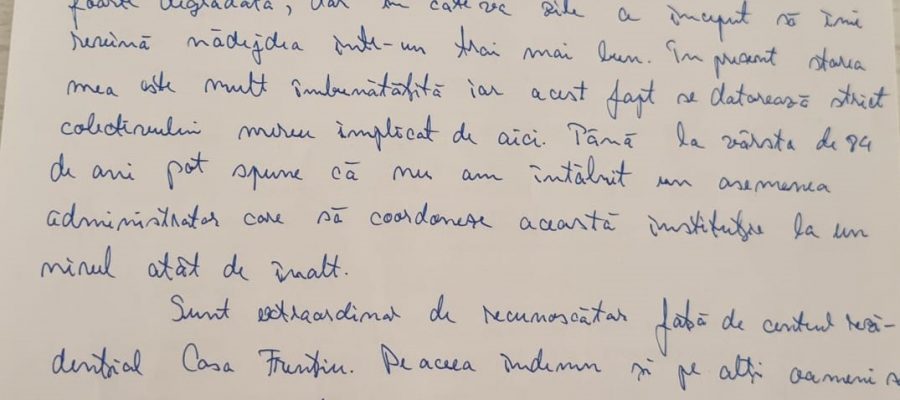 foarte degradată, dar în câteva zile a început să îmi
revină nădejdea într-un trai mai bun. În prezent starea
mea este mult îmbunătățită iar acest fapt se datorează strict
colectivului mereu implicat de aici. Până la vârsta de 84
de ani pot spune că nu am întâlnit un asemenea
administrator care să coordoneze această instituție la un
nivel atât de înalt.
Sunt extraordinar de recunoscător față de centrul rezi-
dențial Casa Frunțiu. De aceea îndemn și pe alți oameni